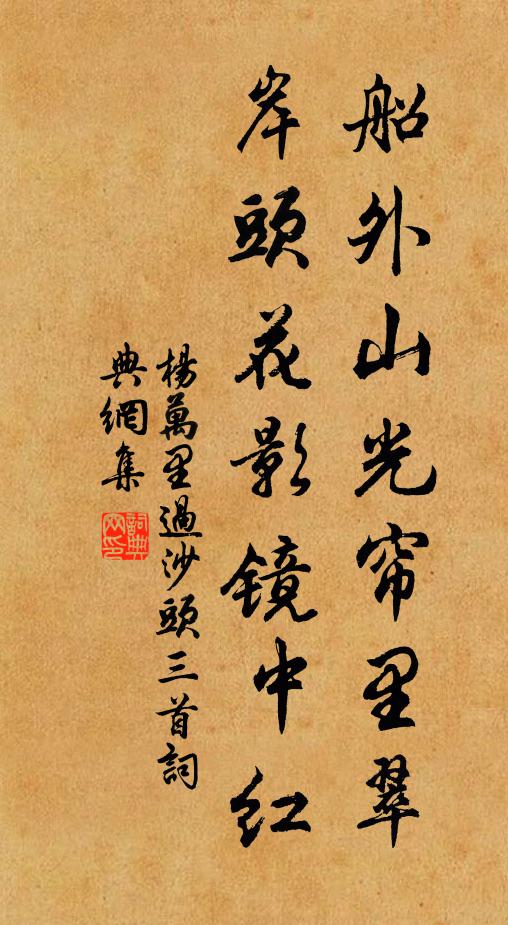 船外山光帘里翠
岸頭花影镜中红
楊萬里過沙頭三首詞
典網集
詞典
网印